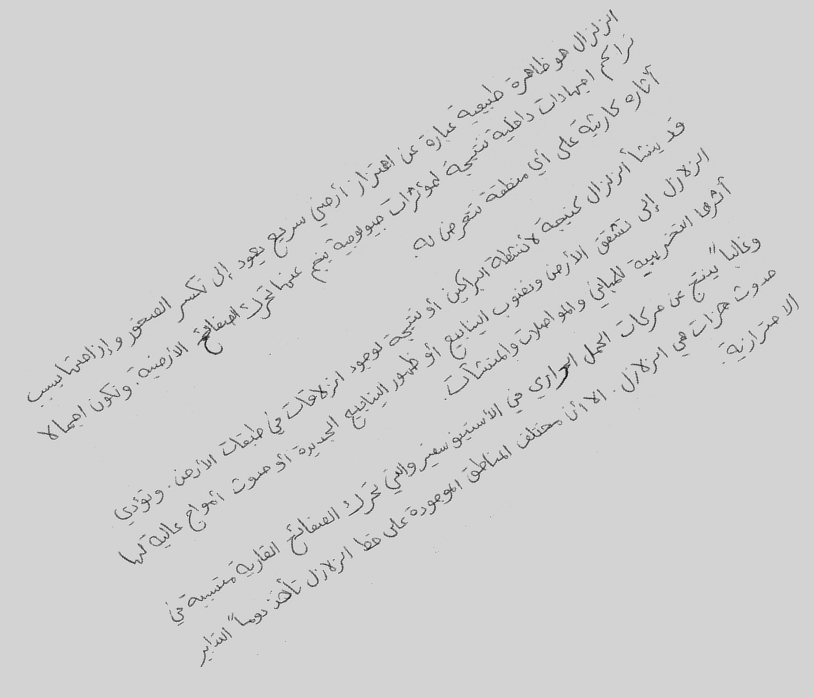 الزلزال هو ظاهرة طبيعية عبارة عن اهتزاز أرضي سريع يعود إلى تكسر الصخور وإزاحتها بسبب
تراكم اجهادات داخلية نتيجة لمؤثرات جيولوجية ينجم عنها تحرك الصفائح الأرضية. وتكون اجمالا
آثاره كارثية على أي منطقة تتعرض له.
قد ينشأ الزلزال كنتيجة لأنشطة البراكين أو نتيجة لوجود انزلاقات في طبقات الأرض. وتؤدي
الزلازل إلى تشقق الأرض ونضوب الينابيع أو ظهور الينابيع الجديدة أو حدوث أمواج عالية لها
أثرها التخريبية للمباني والمواصلات والمنشآت.
وغالباً ينتج عن حركات الحمل الحراري في الأستينوسفير والتي تحرك الصفائح القارية متسببة في
حدوث هزات هي الزلازل. الا أن مختلف المناطق الموجودة على خط الزلازل تأخذ دوماً التدابير
الاحترازية.